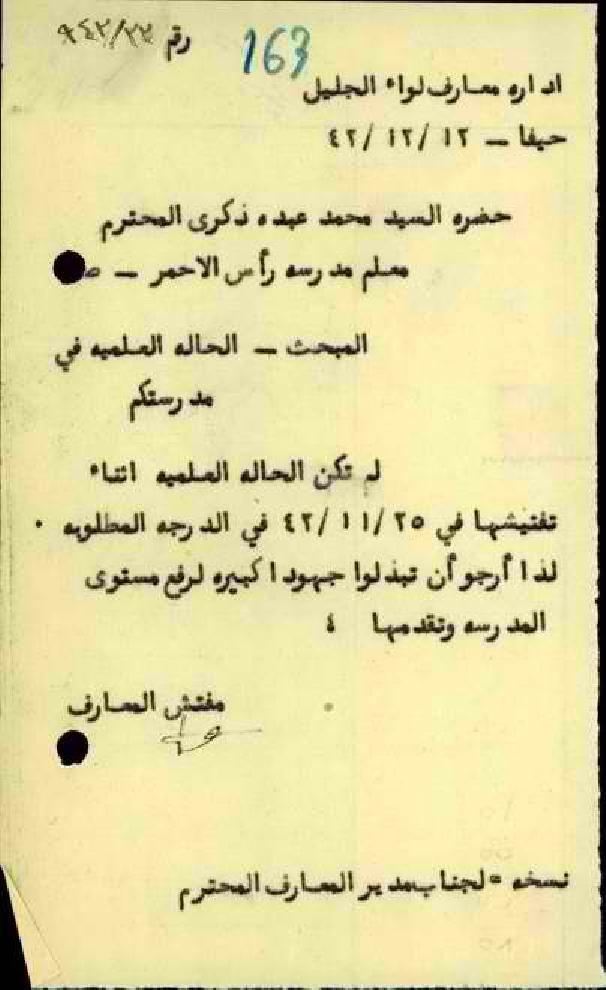 رقم ٩٤٢/٢٢
163
اداره معارف لواء الجليل
حيفا — ١٢ /١٢/ ٤٢
حضره السيد محمد عبده ذكرى المحترم
معلم مدرسه رأس الاحمر —
المبحث — الحاله العلميه في
مدرستكم
لم تكن الحاله العلميه اثناء
تفتيشها في ٢٥ /١١/ ٤٢ في الدرجه المطلوبه ٠
لذا أرجو أن تبذلوا جهودا كبيره لرفع مستوى
المدرسه وتقدمها ؛
مفتش المعارف
نسخه = لجناب مدير المعارف المحترم